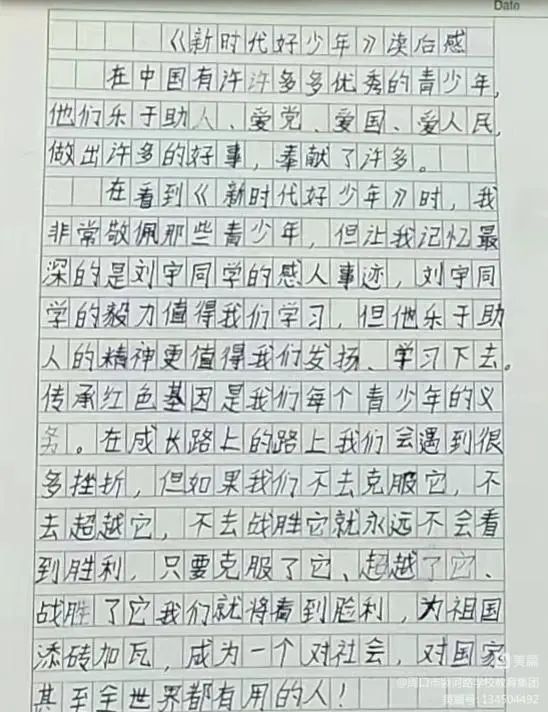 Date
《新时代好少年》读后感
在中国有许许多多优秀的青少年,
他们乐于助人、爱党、爱国、爱人民,
做出许多的好事，奉献了许多。
在看到《新时代好少年》时，我
非常敬佩那些青少年，但让我记忆最
深的是刘宇同学的感人事迹，刘宇同
学的毅力值得我们学习，但他乐于助
人的精神更值得我们发扬、学习下去。
传承红色基因是我们每个青少年的义
务。在成长路上的路上我们会遇到很
多挫折，但如果我们不去克服它，不
去超越它，不去战胜它就永远不会看
到胜利，只要克服了它、超越了它、
战胜了它我们就将看到胜利，为祖国
添砖加瓦，成为一个对社会，对国家
甚至全世界都有用的人！
美篇
教育集团
美篇号: 134504492